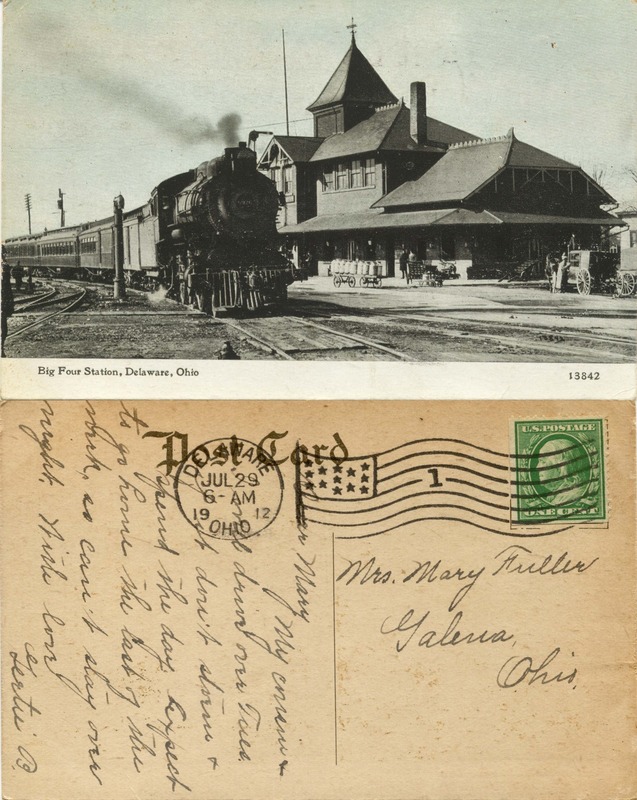 Big Four Station, Delaware, Ohio
13842
Post Card
DELAWARE
JUL 29
6-AM
19 12
OHIO.
1
U.S. POSTAGE
ONE CENT
Dear Mary
My cousin &
I will drive over Tues.
if it don't storm &
spend the day. Expect
to go home the last of the
week, so can't stay over
night. With love
Gertie B.
Mrs. Mary Fuller
Galena,
Ohio.